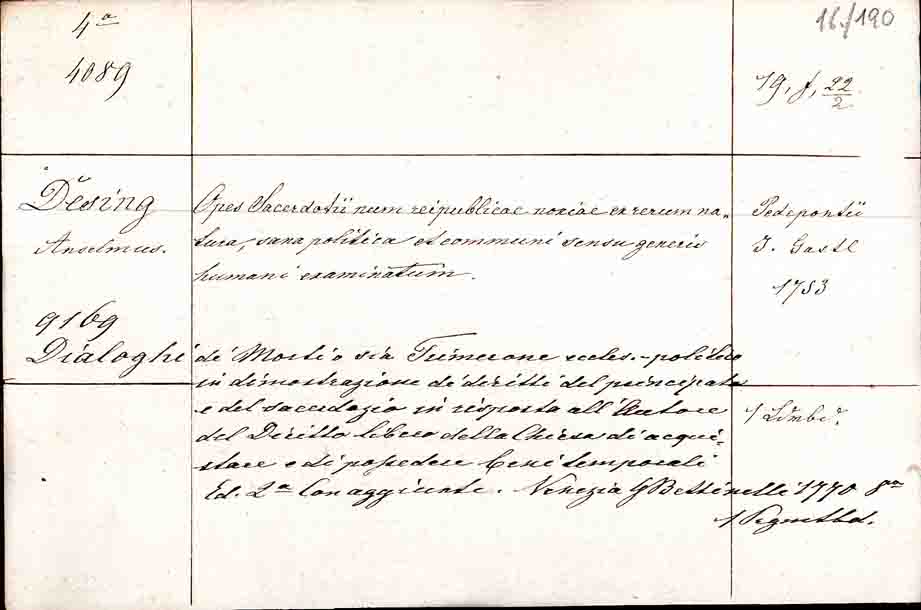 4a
4089
16./190
19, f, 22/2
Desing
Anselmus.
Opes Sacerdotii num reipublicae noxiae ex rerum na-
tura, sana politica et communi sensu generis
humani examinatum.
Pedepontii
J. Gastl
1753
9169
Dialoghi de' Morti o sia Trimerone eccles.-politico
in dimostrazione de' diritti del principato
e del sacerdozio in risposta all' Autore
del Diritto libero della Chiesa di acqui-
stare e di possedere beni temporali
Ed. 2a Con aggiunte. Venezia G Bettinelli 1770 8o
1 Ldrbd.